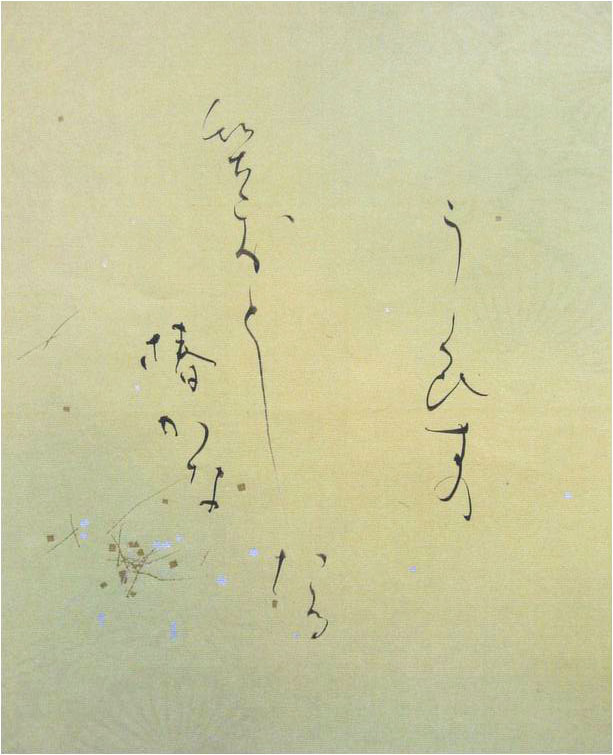 うくひすの
笠おとし
たる
椿かな